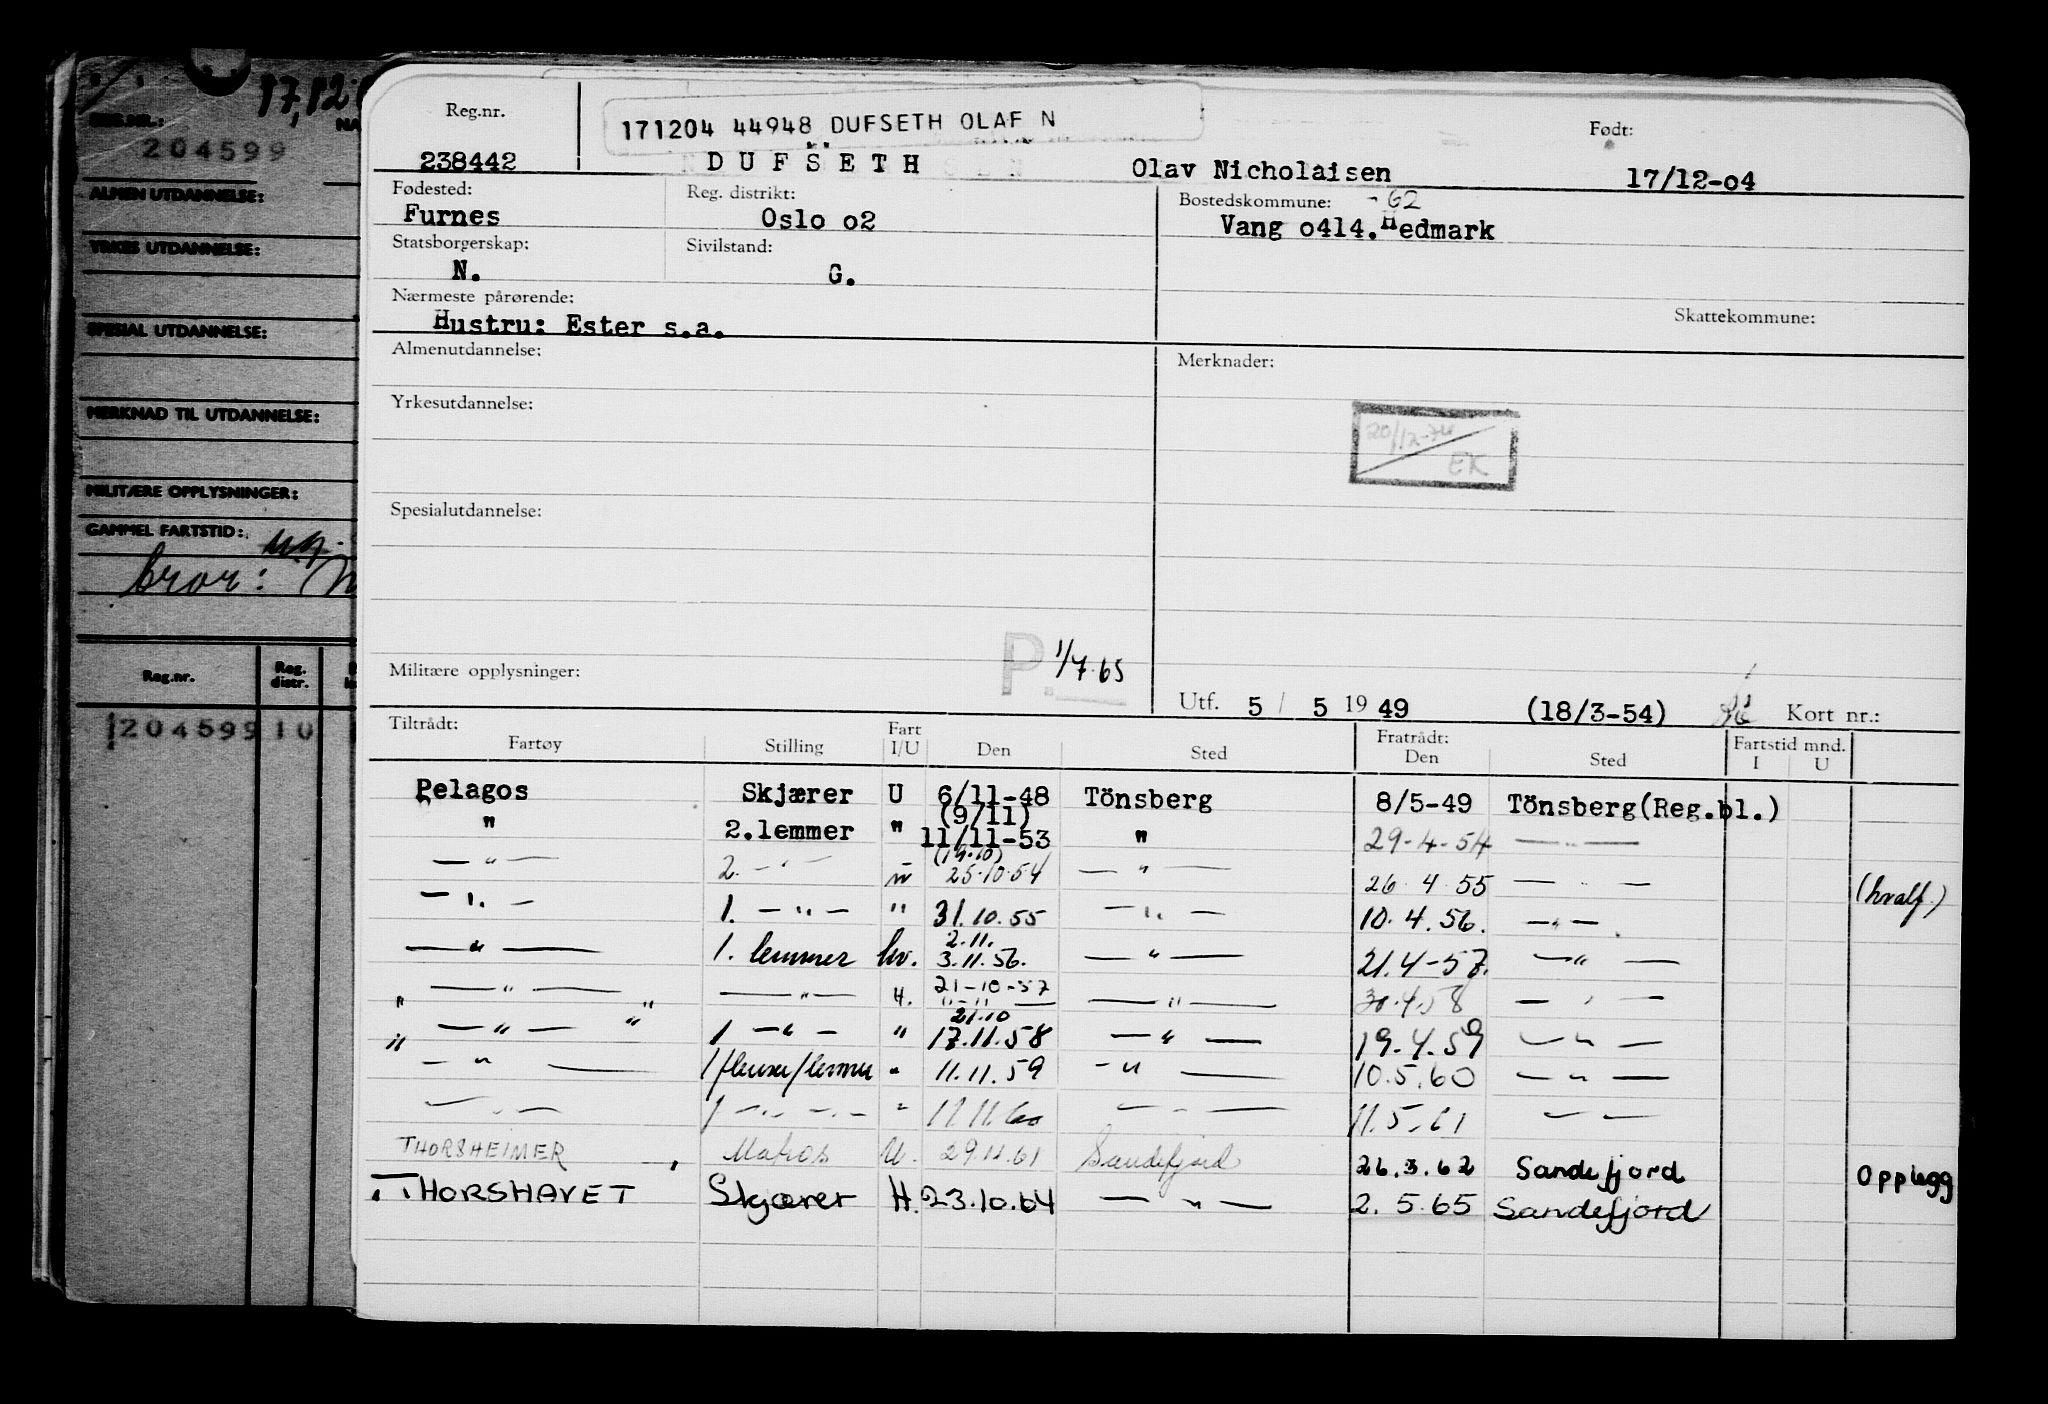 17,12
REG.NR.:
204599
ALMEN UTDANNELSE:
YRKES UTDANNELSE:
SPESIAL UTDANNELSE:
MERKNAD TIL UTDANNELSE:
MILITÆRE OPPLYSNINGER:
GAMMEL FARTSTID:
bror:
Reg.nr. Reg. distr.
204599 10
Reg.nr. 171204 44948 DUFSETH OLAF N Født:
238442 DUFSETH Olav Nicholaisen 17/12-04
Fødested: Reg. distrikt: Bostedskommune: -62
Furnes Oslo o2 Vang o414.Hedmark
Statsborgerskap: Sivilstand:
N. G.
Nærmeste pårørende: Skattekommune:
Hustru: Ester s.a.
Almenutdannelse: Merknader:
Yrkesutdannelse:
20/12-74
EK
Spesialutdannelse:
Militære opplysninger: P. 1/7.65
Utf. 5 / 5 19 49 (18/3-54) Kort nr.:
Tiltrådt: Fartøy Stilling Fart I/U Den Sted Fratrådt: Den Sted Fartstid mnd. I U
Pelagos Skjærer U 6/11-48 Tönsberg 8/5-49 Tönsberg(Reg.bl.)
(9/11)
" 2.lemmer " 11/11-53 " 29-4-54 — " —
(19.10)
— " — 2. — " — " 25.10.54 — " — 26.4.55 — " — (hvalf.)
— " — 1. — " — " 31.10.55 — " — 10.4.56. — " —
2.11.
— " — 1. lemmer hv. 3.11.56. — " — 21.4-57. — " —
21-10-57
" — " — " — " — H. " - " — — " — 30.4.58 — " —
21.10
" — " — " 1 — " — " 17.11.58 — " — 19.4.59 — " —
— " — 1/flenser/lemmer " 11.11.59 — " — 10.5.60 — " —
— " — 1 — " — " — " 11.11.60 — " — 11.5.61 — " —
THORSHEIMER Matros U. 29.11.61 Sandefjord 26.3.62 Sandefjord Opplegg
THORSHAVET Skjærer H. 23.10.64 — " — 2.5.65 Sandefjord